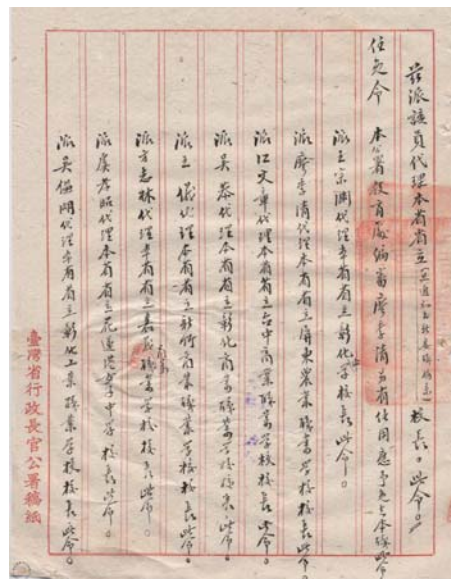 茲派該員代理本省省立(並通知各新委職務表)校長。此令。
任免令 本公署教育處編審廖季清另有任用應予免去本職此令
派王宗淵代理本省省立彰化中學校長此令。
派廖季清代理本省省立屏東農業職業學校校長此令。
派江文章代理本省省立台中商業職業學校校長此令。
派吳 代理本省省立彰化商業職業學校校長此令。
派王 代理本省省立新竹商業職業學校校長此令。
派方志林代理本省省立嘉義商業職業學校校長此令。
派虞孝昭代理本省省立花蓮港女中學校長此令。
派吳 代理本省省立彰化工業職業學校校長此令。
臺灣省行政長官公署稿紙